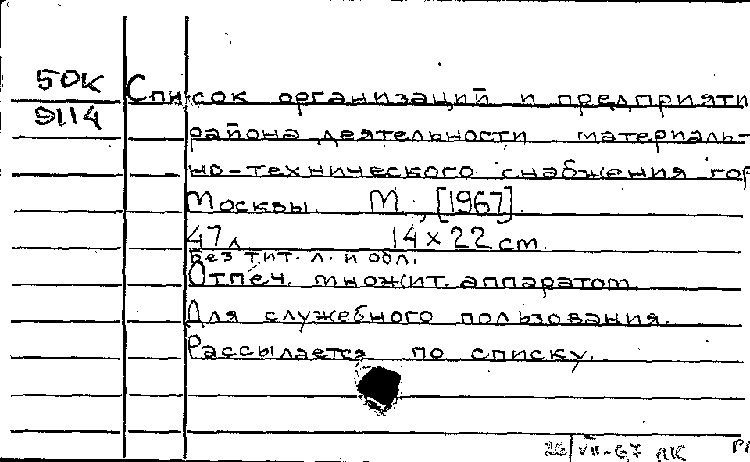 50К
9114
Список организаций и предприяти
района деятельности материаль-
но-технического снабжения гор
Москвы. М., [1967].
47 л. 14 x 22 см.
Без тит. л. и обл.
Отпеч. множит. аппаратом.
Для служебного пользования.
Рассылается по списку.
26/VII-67 ЛК